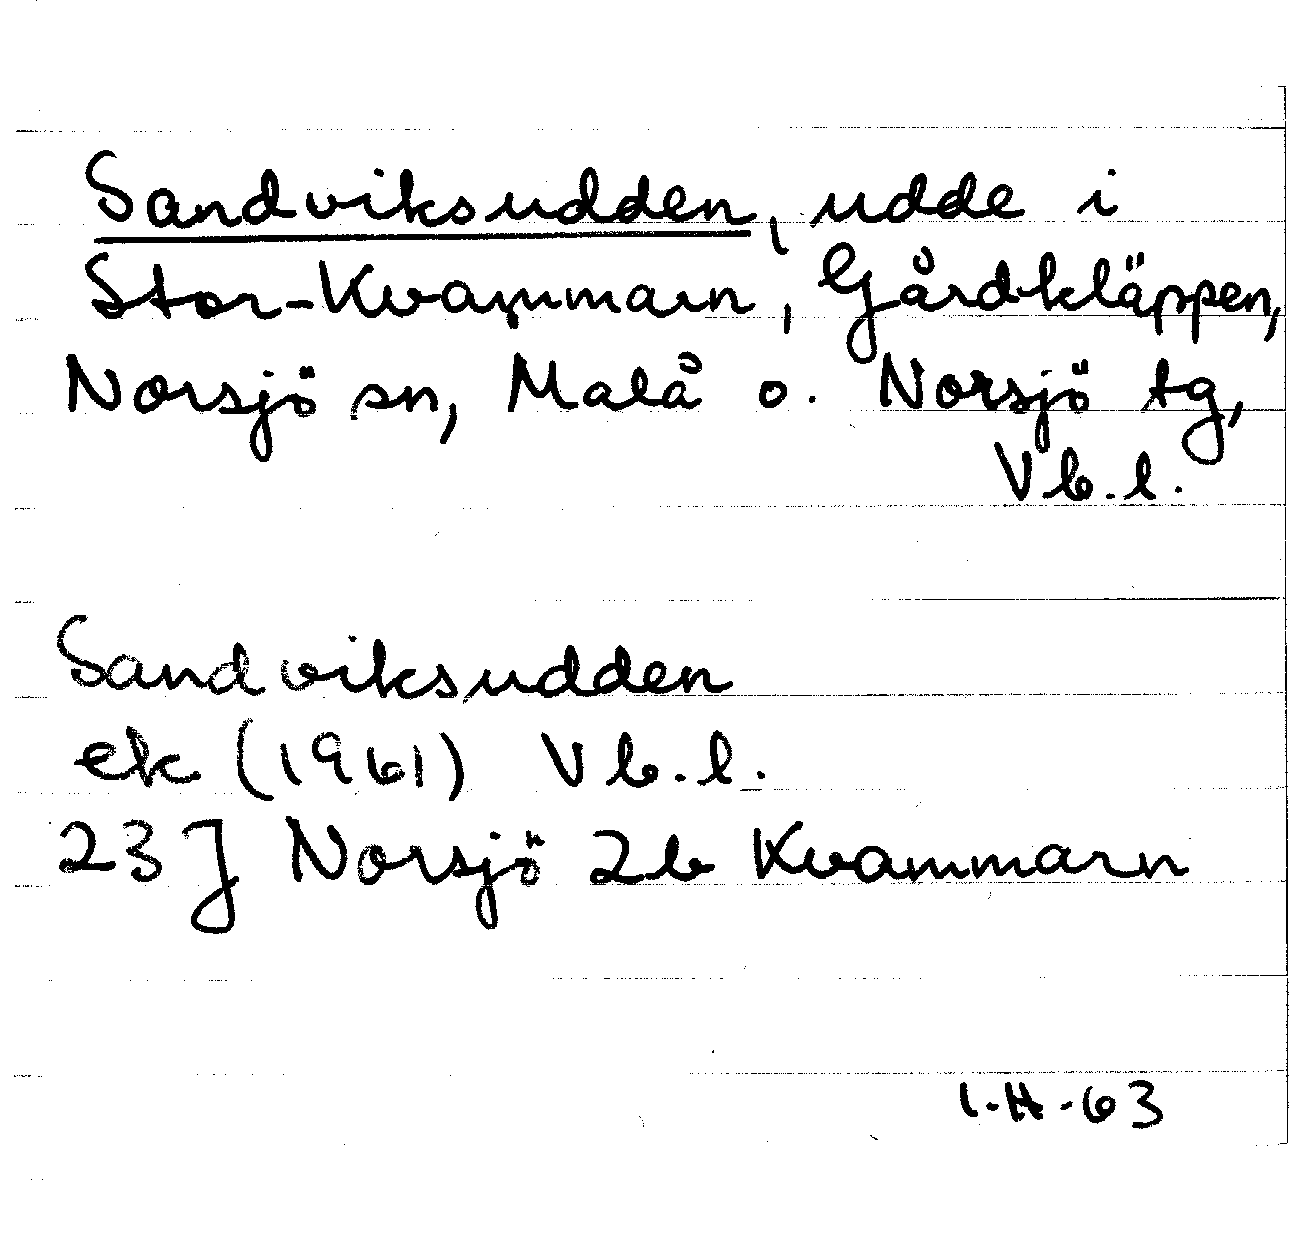 Sandviksudden, udde i
Stor-Kvammarn, Gårdkläppen,
Norsjö sn, Malå o. Norsjö tg,
Vb.l.
Sandviksudden
ek (1961) Vb.l.
23J Norsjö 2b Kvammarn
1.H.63